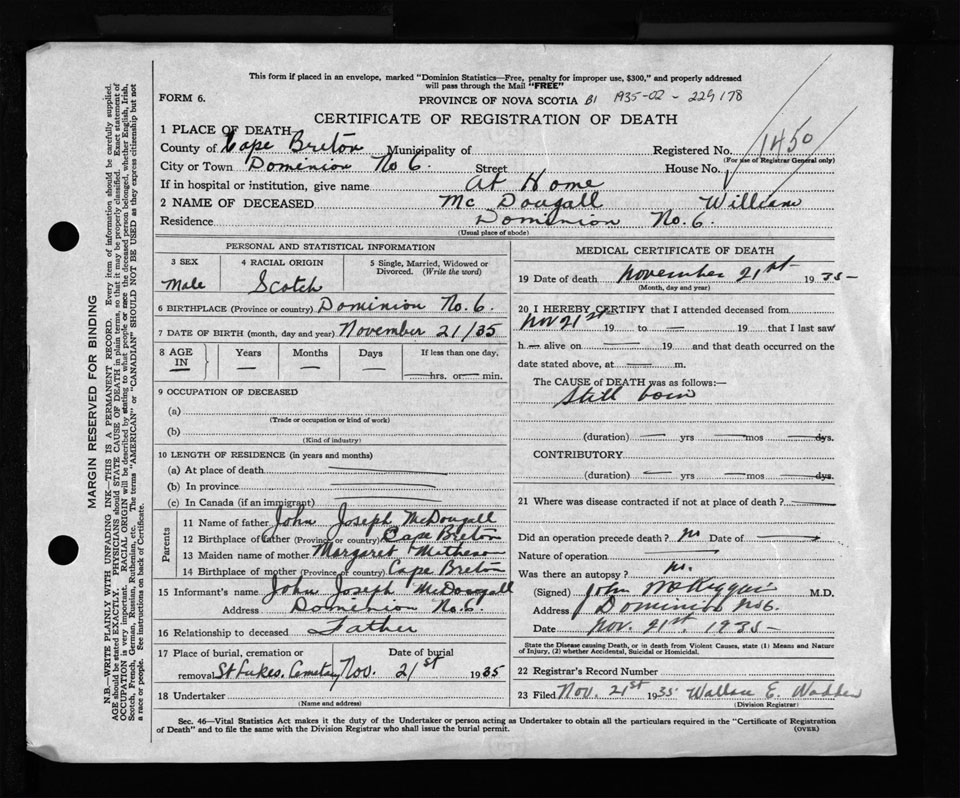 This form if placed in an envelope, marked "Dominion Statistics—Free, penalty for improper use, $300," and properly addressed
will pass through the Mail "FREE"
FORM 6.
PROVINCE OF NOVA SCOTIA B1 1935-02-229178
CERTIFICATE OF REGISTRATION OF DEATH
1 PLACE OF DEATH
County of Cape Breton Municipality of Registered No. 1450
(For use of Registrar General only)
City or Town Dominion No 6. Street House No.
If in hospital or institution, give name At Home
2 NAME OF DECEASED Mc Dougall William
Residence Dominion No. 6.
(Usual place of abode)
PERSONAL AND STATISTICAL INFORMATION
3 SEX 4 RACIAL ORIGIN 5 Single, Married, Widowed or
Divorced. (Write the word)
Male Scotch
6 BIRTHPLACE (Province or country) Dominion No. 6.
7 DATE OF BIRTH (month, day and year) November 21/35
8 AGE IN Years Months Days If less than one day,
— — — — —hrs. or— min.
9 OCCUPATION OF DECEASED
(a)
(Trade or occupation or kind of work)
(b)
(Kind of industry)
10 LENGTH OF RESIDENCE (in years and months)
(a) At place of death
(b) In province
(c) In Canada (if an immigrant)
Parents
11 Name of father John Joseph McDougall
12 Birthplace of father (Province or country) Cape Breton
13 Maiden name of mother Margaret Matheson
14 Birthplace of mother (Province or country) Cape Breton
15 Informant's name John Joseph McDougall
Address Dominion No. 6.
16 Relationship to deceased Father
17 Place of burial, cremation or Date of burial
removal St Lukes. Cemetary Nov. 21st 1935
18 Undertaker
(Name and address)
MEDICAL CERTIFICATE OF DEATH
19 Date of death November 21st 1935-
(Month, day and year)
20 I HEREBY CERTIFY that I attended deceased from
Nov 21st 19 to — 19 that I last saw
h— alive on — 19 and that death occurred on the
date stated above, at — m.
The CAUSE of DEATH was as follows:—
Still born
(duration) — yrs — mos — dys.
CONTRIBUTORY
(duration) — yrs — mos — dys.
21 Where was disease contracted if not at place of death? —
Did an operation precede death? no Date of —
Nature of operation —
Was there an autopsy? no.
(Signed) John McKeggan M.D.
Address Dominion No 6.
Date Nov. 21st. 1935-
State the Disease causing Death, or in death from Violent Causes, state (1) Means and Nature
of Injury, (2) whether Accidental, Suicidal or Homicidal.
22 Registrar's Record Number
23 Filed Nov. 21st 1935 Wallace E.
(Division Registrar)
Sec. 46—Vital Statistics Act makes it the duty of the Undertaker or person acting as Undertaker to obtain all the particulars required in the "Certificate of Registration
of Death" and to file the same with the Division Registrar who shall issue the burial permit. (OVER)
MARGIN RESERVED FOR BINDING
N.B.—WRITE PLAINLY WITH UNFADING INK—THIS IS A PERMANENT RECORD. Every item of information should be carefully supplied.
AGE should be stated EXACTLY. PHYSICIANS should STATE CAUSE OF DEATH in plain terms, so that it may be properly classified. Exact statement of
OCCUPATION is very important. RACIAL ORIGIN will be described by stating to what people or race the deceased person belonged, whether English, Irish,
Scotch, French, German, Russian, Ruthenian, etc. The terms "AMERICAN" or "CANADIAN" SHOULD NOT BE USED as they express citizenship but not
a race or people. See instructions on back of Certificate.